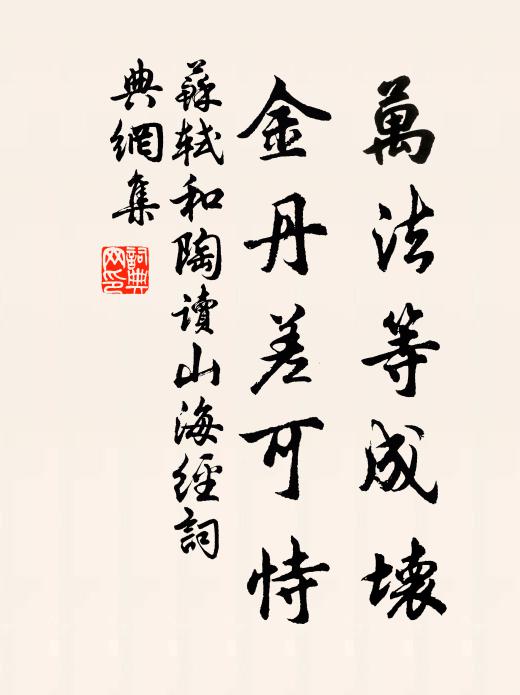 萬法等成壞
金丹差可恃
蘇軾和陶讀山海經詞
典網集
詞典
网印